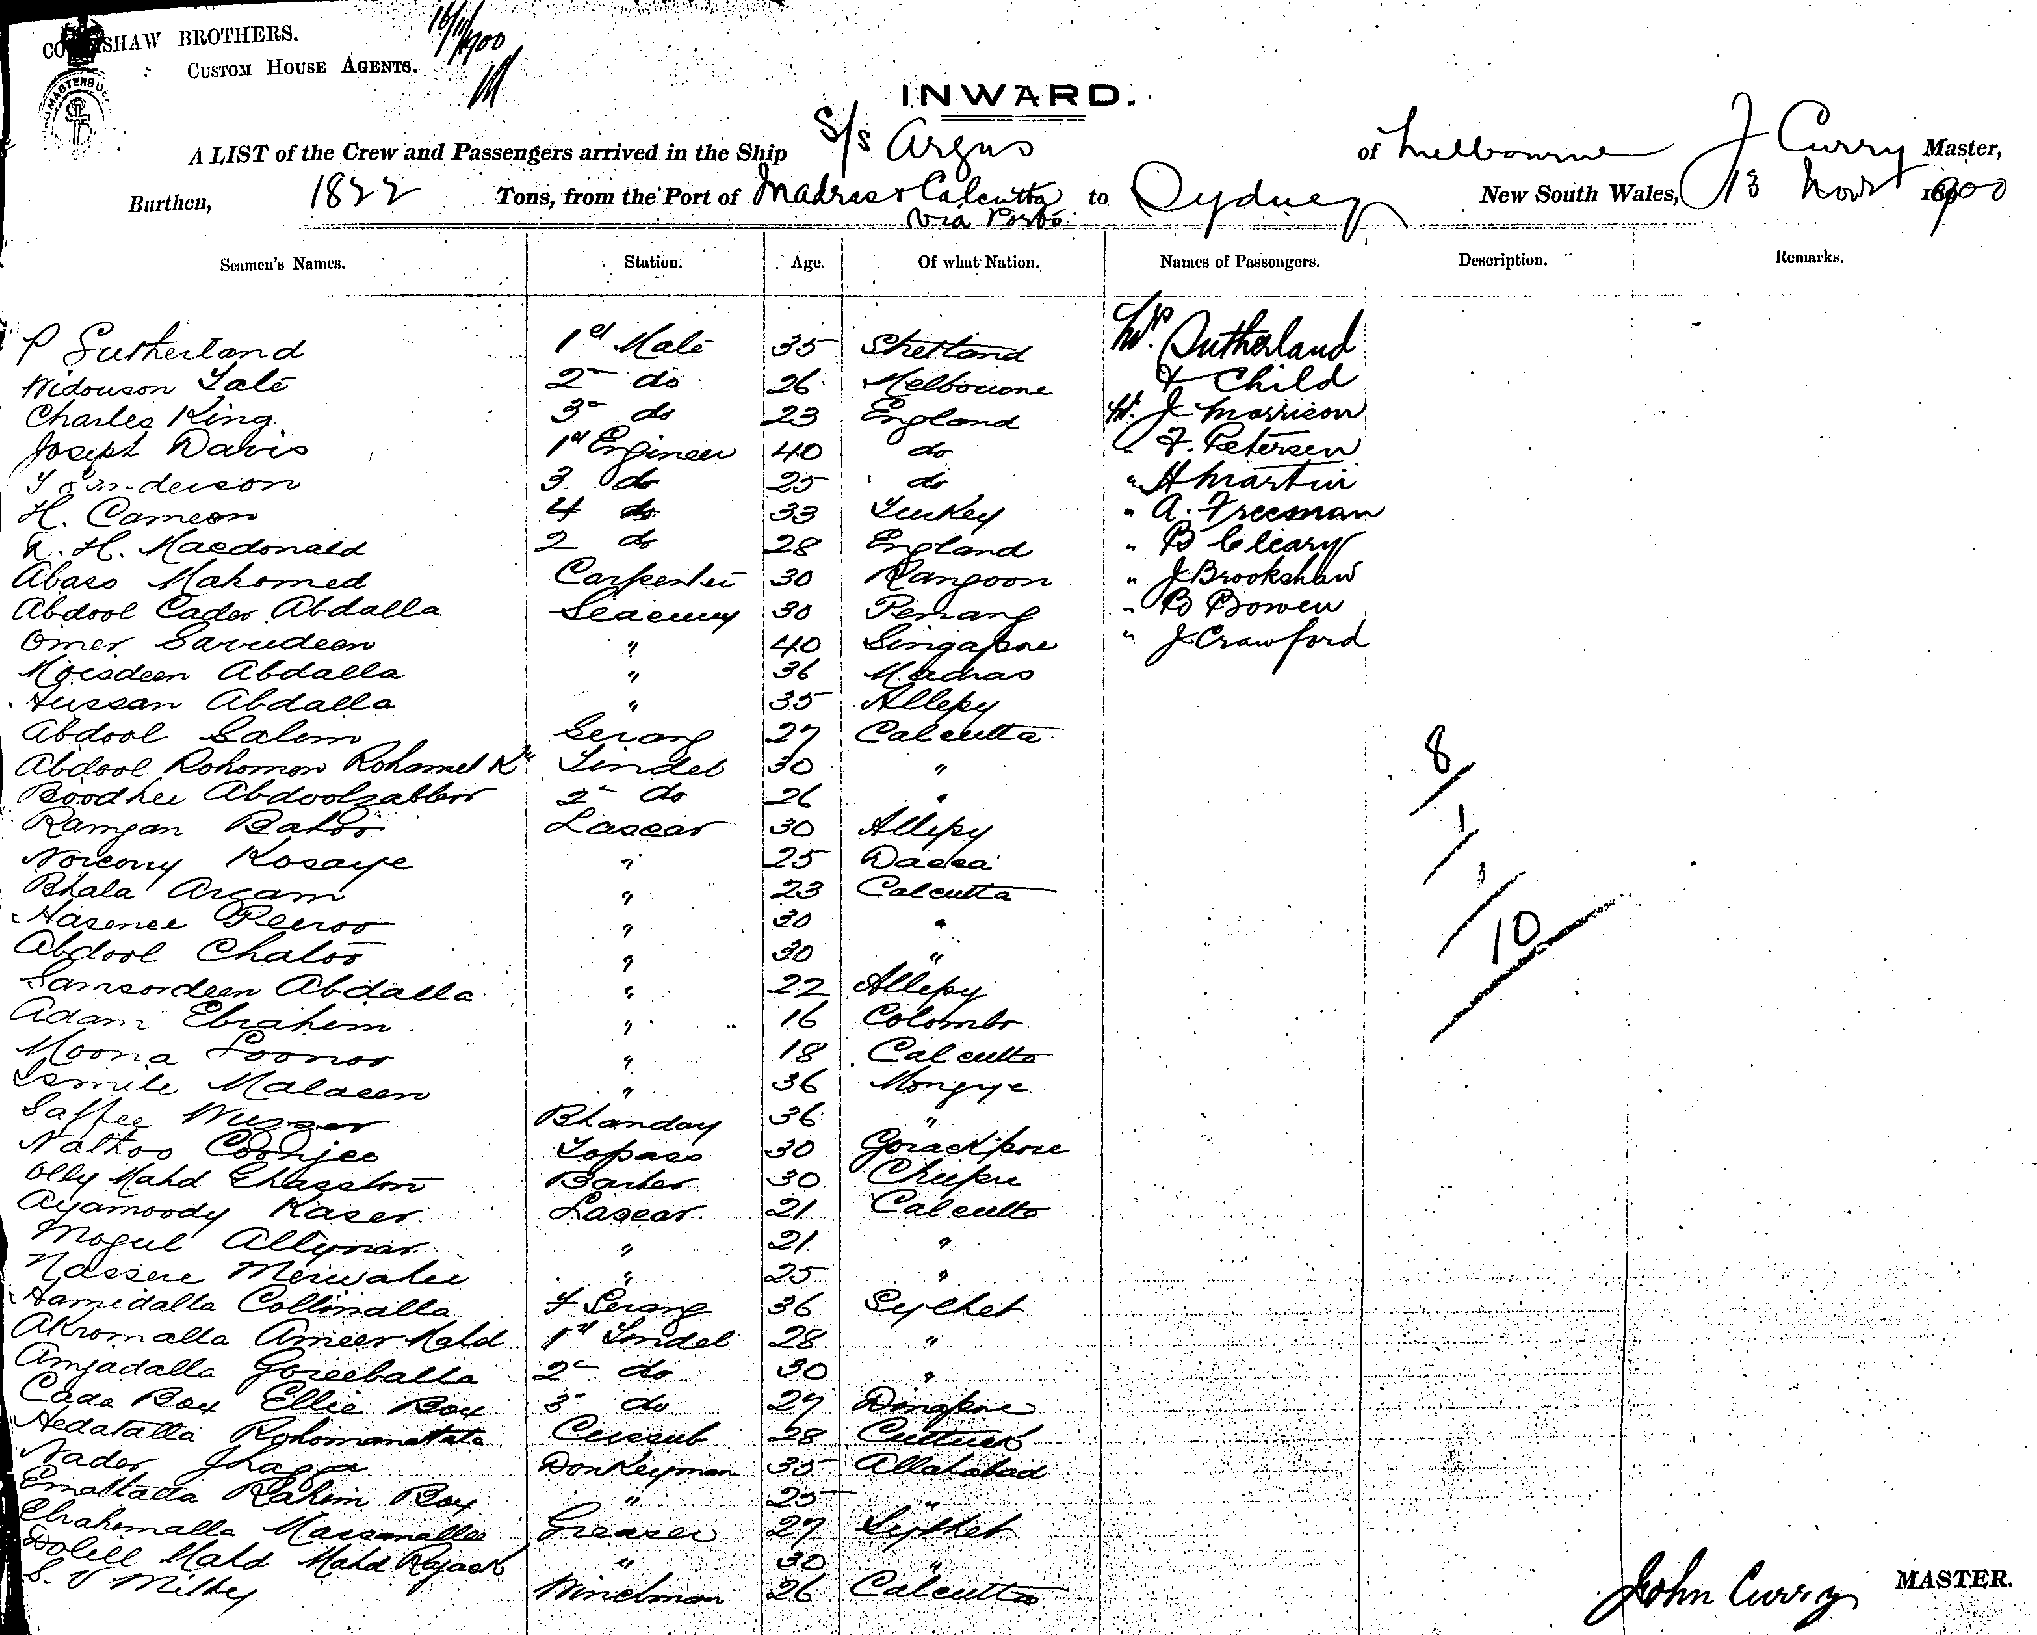 COWENSHAW BROTHERS.
CUSTOM HOUSE AGENTS.
16/11/1900
INWARD.
A LIST of the Crew and Passengers arrived in the Ship S/s Argus of Melbourne J Curry Master,
Burthen, 1822 Tons, from the Port of Madras & Calcutta via Ports to Sydney New South Wales, 13 Novr 1900
Seamen's Names. Station. Age. Of what Nation. Names of Passengers. Description. Remarks.
P Sutherland 1st Mate 35 Shetland Mrs. Sutherland
Widouson Tate 2 do 26 Melbourne & Child
Charles King 3 do 23 England Mr. J Morrison
Joseph Davis 1st Engineer 40 do " F. Petersen
3 do 25 do " H Martin
H. Cameron 4 do 33 Turkey " A. Freeman
R. H. Macdonald 2 do 28 England " B Cleary
Abass Mahomed Carpenter 30 Rangoon " J Brookshaw
Abdool Cader Abdalla 30 Penang " B Bowen
Omer Sarudeen " 40 Singapore " J Crawford
Moisdeen Abdalla " 36 Madras
Hussan Abdalla " 35 Allepy
Abdool Salem Serang 27 Calcutta
Abdool Rohomon Rohamed Tindel 30 "
Boodhee Abdoolgabbor 2 do 26 "
Ramjan Bakor Lascar 30 Allepy
Kosaye " 25 Dacca
Bhala Argam " 23 Calcutta
Peeroo " 30 "
Abdool Chatoo " 30 "
Samsordeen Abdalla " 22 Allepy
Adam Ebrahem " 16 Colombo
Moona Loonoo " 18 Calcutta
Ismile Malaeen " 36
Saffee Bhandary 36 "
Nathoo Coonjee Topass 30 Gorackpore
Olly Mahd Barber 30
Ayamoody Kaser Lascar 21 Calcutta
Mogul " 21 "
Nassere " 25 "
Hamidalla Collinalla F Serang 36 Sylhet
Akromalla Ameer Mahd 1st Tindel 28 "
Amjadalla Goreeballa 2 do 30 "
Cada Box Ellie Box 3 do 27
Cussub 28 Cuttuck
Nader Donkeyman 35 Allahabad
Rahim Box " 25 "
Ebrahemalla Greaser 27 Sylhet
Mahd Mahd " 30 "
Winchman 26 Calcutta
8/
1/
1/
10
John Curry MASTER.